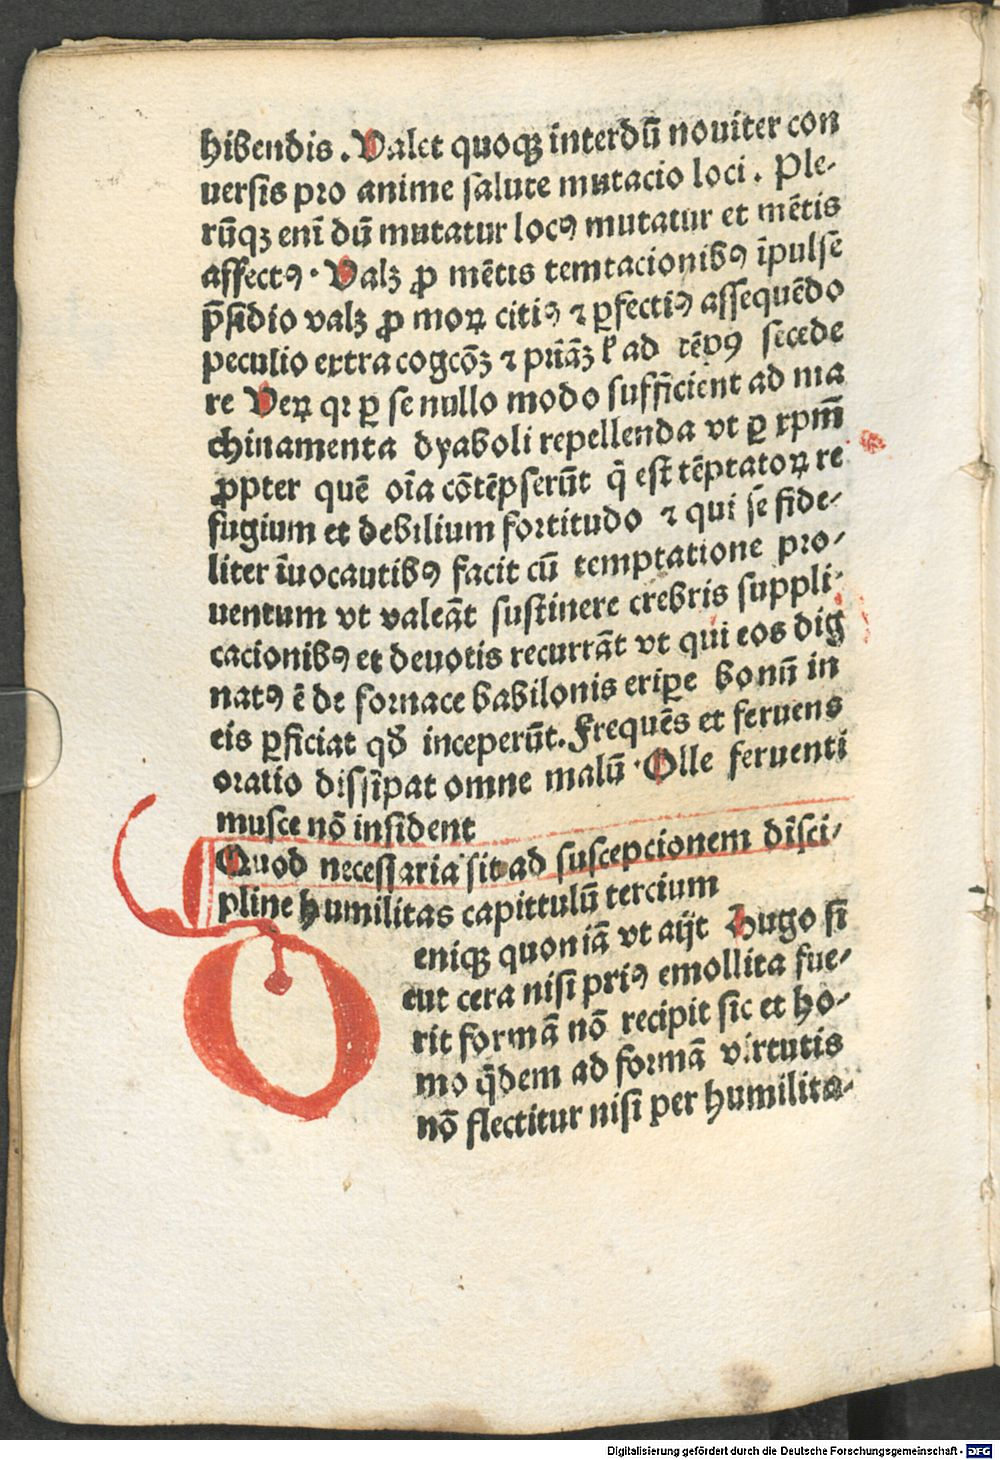 hibendis. Valet quoqꝫ interdū nouiter con
uersis pro anime salute mutacio loci. Ple-
rūqꝫ enī dū mutatur locꝰ mutatur et mētis
affectꝰ. Valꝫ ꝓ mētis temtacionibꝰ īpulse
p̄sidio valꝫ ꝓ moꝝ citiꝰ ⁊ ꝑfectiꝰ assequēdo
peculio extra cogcōꝫ ⁊ ad tēpꝰ secede
re Veꝝ qꝛ ꝑ se nullo modo sufficient ad ma
chinamenta dyaboli repellenda vt ꝑ xpm̄
ꝓpter quē oīa cōtēpserūt q̄ est tēptatoꝝ re
fugium et debilium fortitudo ⁊ qui se fide-
liter īuocantibꝰ facit cū temptatione pro-
uentum vt valeāt sustinere crebris suppli-
cacionibꝰ et deuotis recurrāt vt qui eos dig
natꝰ ē de fornace babilonis eriꝑe bonū in
eis ꝑficiat qđ inceperūt. Frequēs et feruens
oratio dissipat omne malū. Olle feruenti
musce nō insident
Quod necessaria sit ad suscepcionem disci-
pline humilitas capittulū tercium
Deniqꝫ quoniā vt aijt Hugo si
cut cera nisi priꝰ emollita fue-
rit formā nō recipit sic et ho-
mo q̄dem ad formā virtutis
nō flectitur nisi per humilita-
Digitalisierung gefördert durch die Deutsche Forschungsgemeinschaft - DFG